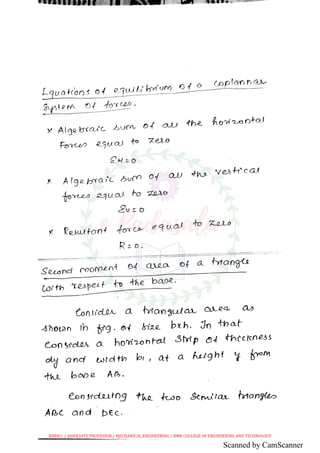 Equations of equilibrium of a coplanar
system of forces.
× Algebraic sum of all the horizontal
Forces equal to zero
ΣH=0
× Algebraic sum of all the vertical
forces equal to zero
Σv=0
× Resultant force equal to zero
R=0.
Second moment of area of a triangle
with respect to the base.
Consider a triangular area as
shown in fig. of size bxh. In that
Consider a horizontal strip of thickness
dy and width b1, at a height y from
the base AB.
Considering the two similar triangles
ABC and DEC.
/ ASSOCIATE PROFESSOR / MECHANICAL ENGINEERING / COLLEGE OF ENGINEERING AND TECHNOLOGY
Scanned by CamScanner